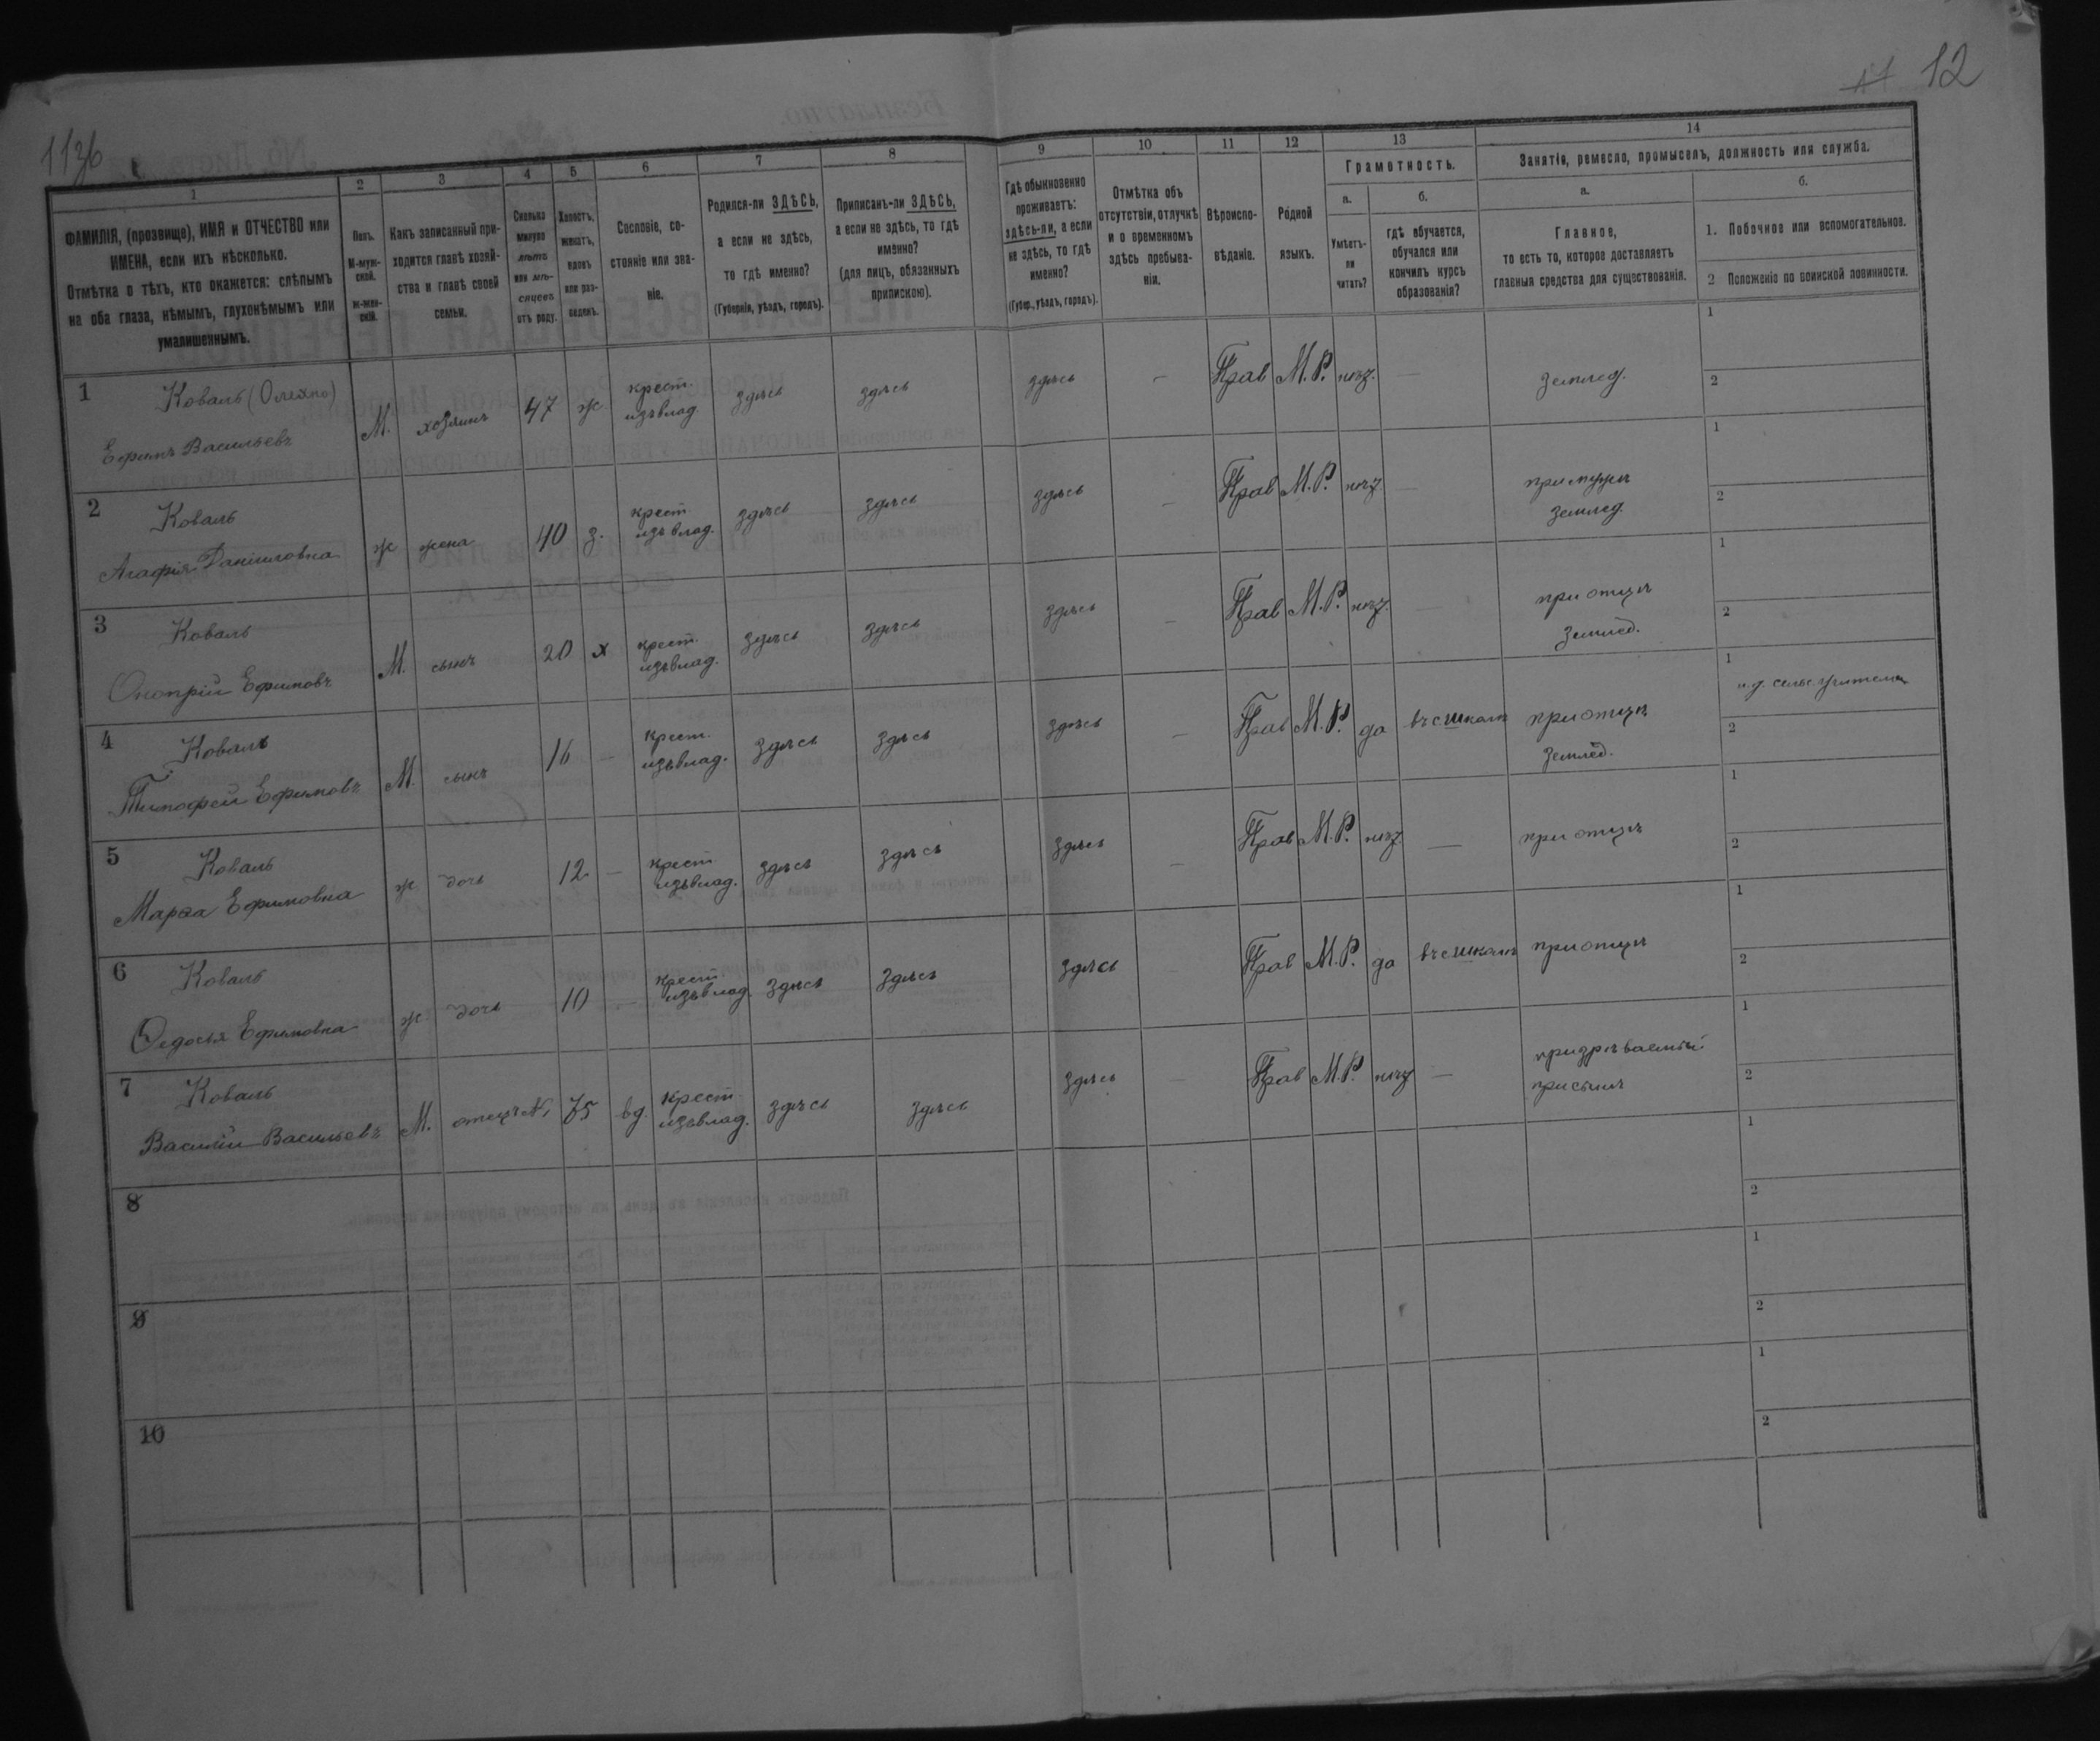 1136
11 12
1
ФАМИЛІЯ, (прозвище), ИМЯ и ОТЧЕСТВО или
ИМЕНА, если ихъ нѣсколько.
Отмѣтка о тѣхъ, кто окажется: слѣпымъ
на оба глаза, нѣмымъ, глухонѣмымъ или
умалишеннымъ.
2
Полъ.
М-муж-
ской.
ж-жен-
скій.
3
Какъ записанный при-
ходится главѣ хозяй-
ства и главѣ своей
семьи.
4
Сколько
минуло
лѣтъ
или мѣ-
сяцевъ
отъ роду.
5
Холостъ,
женатъ,
вдовъ
или раз-
веденъ.
6
Сословіе, со-
стояніе или зва-
ніе.
7
Родился-ли ЗДѢСЬ,
а если не здѣсь,
то гдѣ именно?
(Губернія, уѣздъ, городъ).
8
Приписанъ-ли ЗДѢСЬ,
а если не здѣсь, то гдѣ
именно?
(для лицъ, обязанныхъ
припискою).
9
Гдѣ обыкновенно
проживаетъ:
здѣсь-ли, а если
не здѣсь, то гдѣ
именно?
(Губер., уѣздъ, городъ).
10
Отмѣтка объ
отсутствіи, отлучкѣ
и о временномъ
здѣсь пребыва-
ніи.
11
Вѣроиспо-
вѣданіе.
12
Родной
языкъ.
13
Грамотность.
а.
Умѣетъ-
ли
читать?
б.
гдѣ обучается,
обучался или
кончилъ курсъ
образованія?
14
Занятіе, ремесло, промыселъ, должность или служба.
а.
Главное,
то есть то, которое доставляетъ
главныя средства для существованія.
б.
1. Побочное или вспомогательное.
2 Положеніе по воинской повинности.
1 Коваль (Олехно)
Ефимъ Васильевъ
М. хозяинъ 47 ж
крест.
изъ влад.
здѣсь здѣсь здѣсь — Прав М.Р. нѣтъ — землед.
1
2
2 Коваль
Агафія Даніиловна
ж жена 40 з.
крест.
изъ влад.
здѣсь здѣсь здѣсь — Прав М.Р. нѣтъ —
при мужѣ
землед.
1
2
3 Коваль
Онопрій Ефимовъ
М. сынъ 20 х
крест.
изъ влад.
здѣсь здѣсь здѣсь — Прав М.Р. нѣтъ —
при отцѣ
землед.
1
2
4 Коваль
Тимофей Ефимовъ
М. сынъ 16 —
крест.
изъ влад.
здѣсь здѣсь здѣсь — Прав М.Р. да въ с школѣ
при отцѣ
землед.
1 сельс. учителя
2
5 Коваль
Марѳа Ефимовна
ж дочь 12 —
крест
изъ влад.
здѣсь здѣсь здѣсь — Прав М.Р. нѣтъ — при отцѣ
1
2
6 Коваль
Ѳедосья Ефимовна
ж дочь 10 —
крест.
изъ влад.
здѣсь здѣсь здѣсь Прав М.Р. да въ с школѣ при отцѣ
1
2
7 Коваль
Василій Васильевъ
М. отецъ №1 75 вд.
крест
изъ влад.
здѣсь здѣсь здѣсь — Прав М.Р. нѣтъ —
призрѣваемый
при сынѣ
1
2
8
1
2
9
1
2
10
1
2